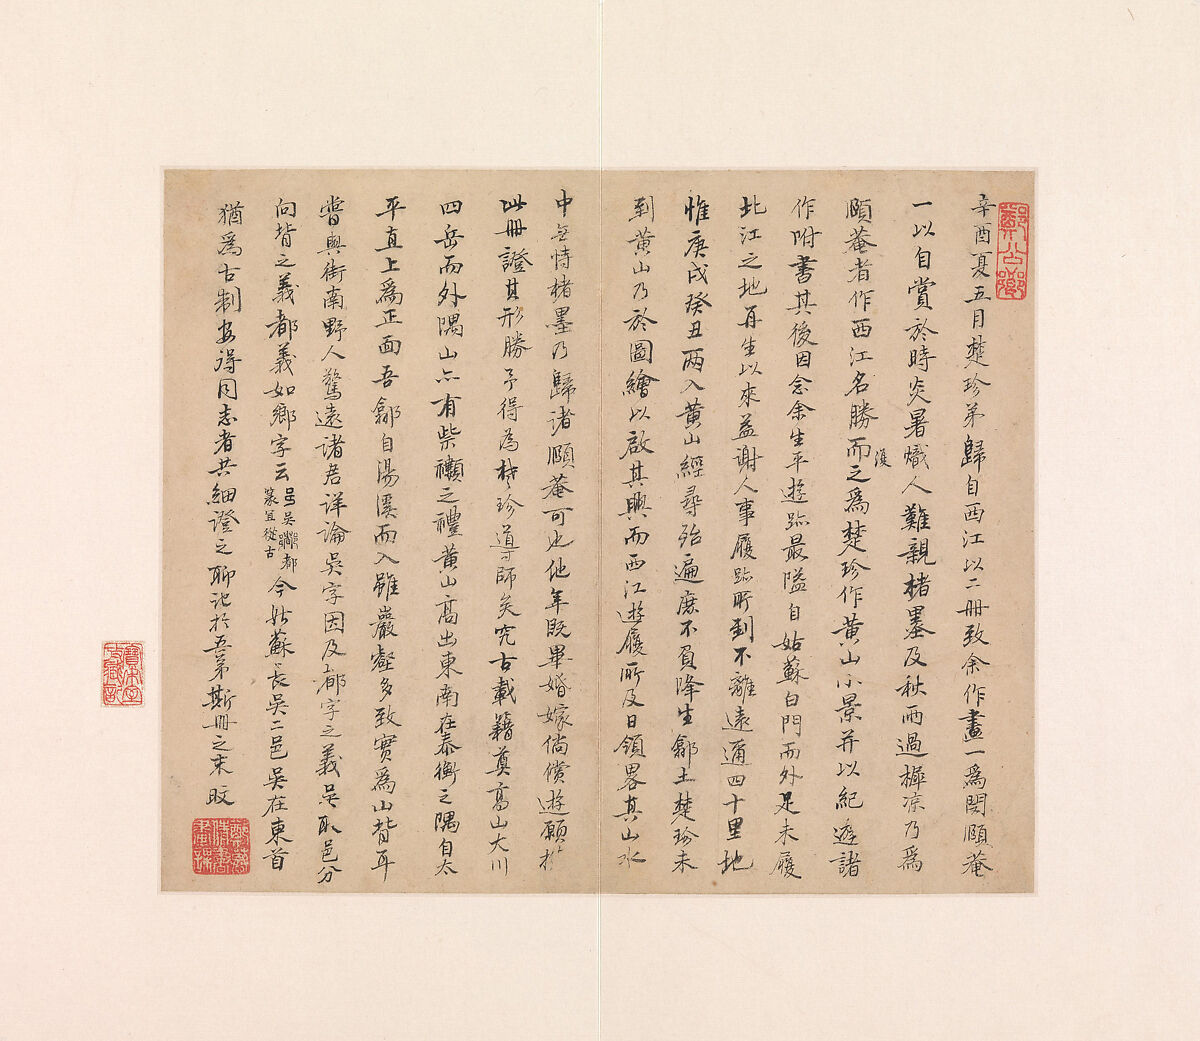 辛酉夏五月楚珍弟歸自西江以二冊致余作畫一為閔頤菴
一以自賞於時炎暑熾人難親楮墨及秋雨過樨涼乃為
頤菴者作西江名勝而復之為楚珍作黃山小景并以紀遊諸
作附書其後因念余生平遊跡最隘自姑蘇白門而外足未履
北江之地再生以來益謝人事履跡所到不離遠邇四十里地
惟庚戌癸丑兩入黃山經尋殆遍庶不負降生鄒土楚珍未
到黃山乃於圖繪以啟其興而西江遊履所及日領畧其山水
中無恃楮墨乃歸諸頤菴可也他年既畢婚嫁倘償遊願於
此冊證其形勝予得為楚珍導師矣究古載籍奠高山大川
四岳而外隅山亦有柴禷之禮黃山高出東南在泰衡之隅自太
平直上為正面吾鄒自湯溪而入雖巖壑多致實為山背耳
嘗與街南野人驚遠諸君詳論吳字因及都字之義吳取邑分
向背之義都義如鄉字云
吳鄉都
篆宜從古
今姑蘇長吳二邑吳在東首
猶為古制安得同志者共細證之聊記於吾弟斯冊之末旼